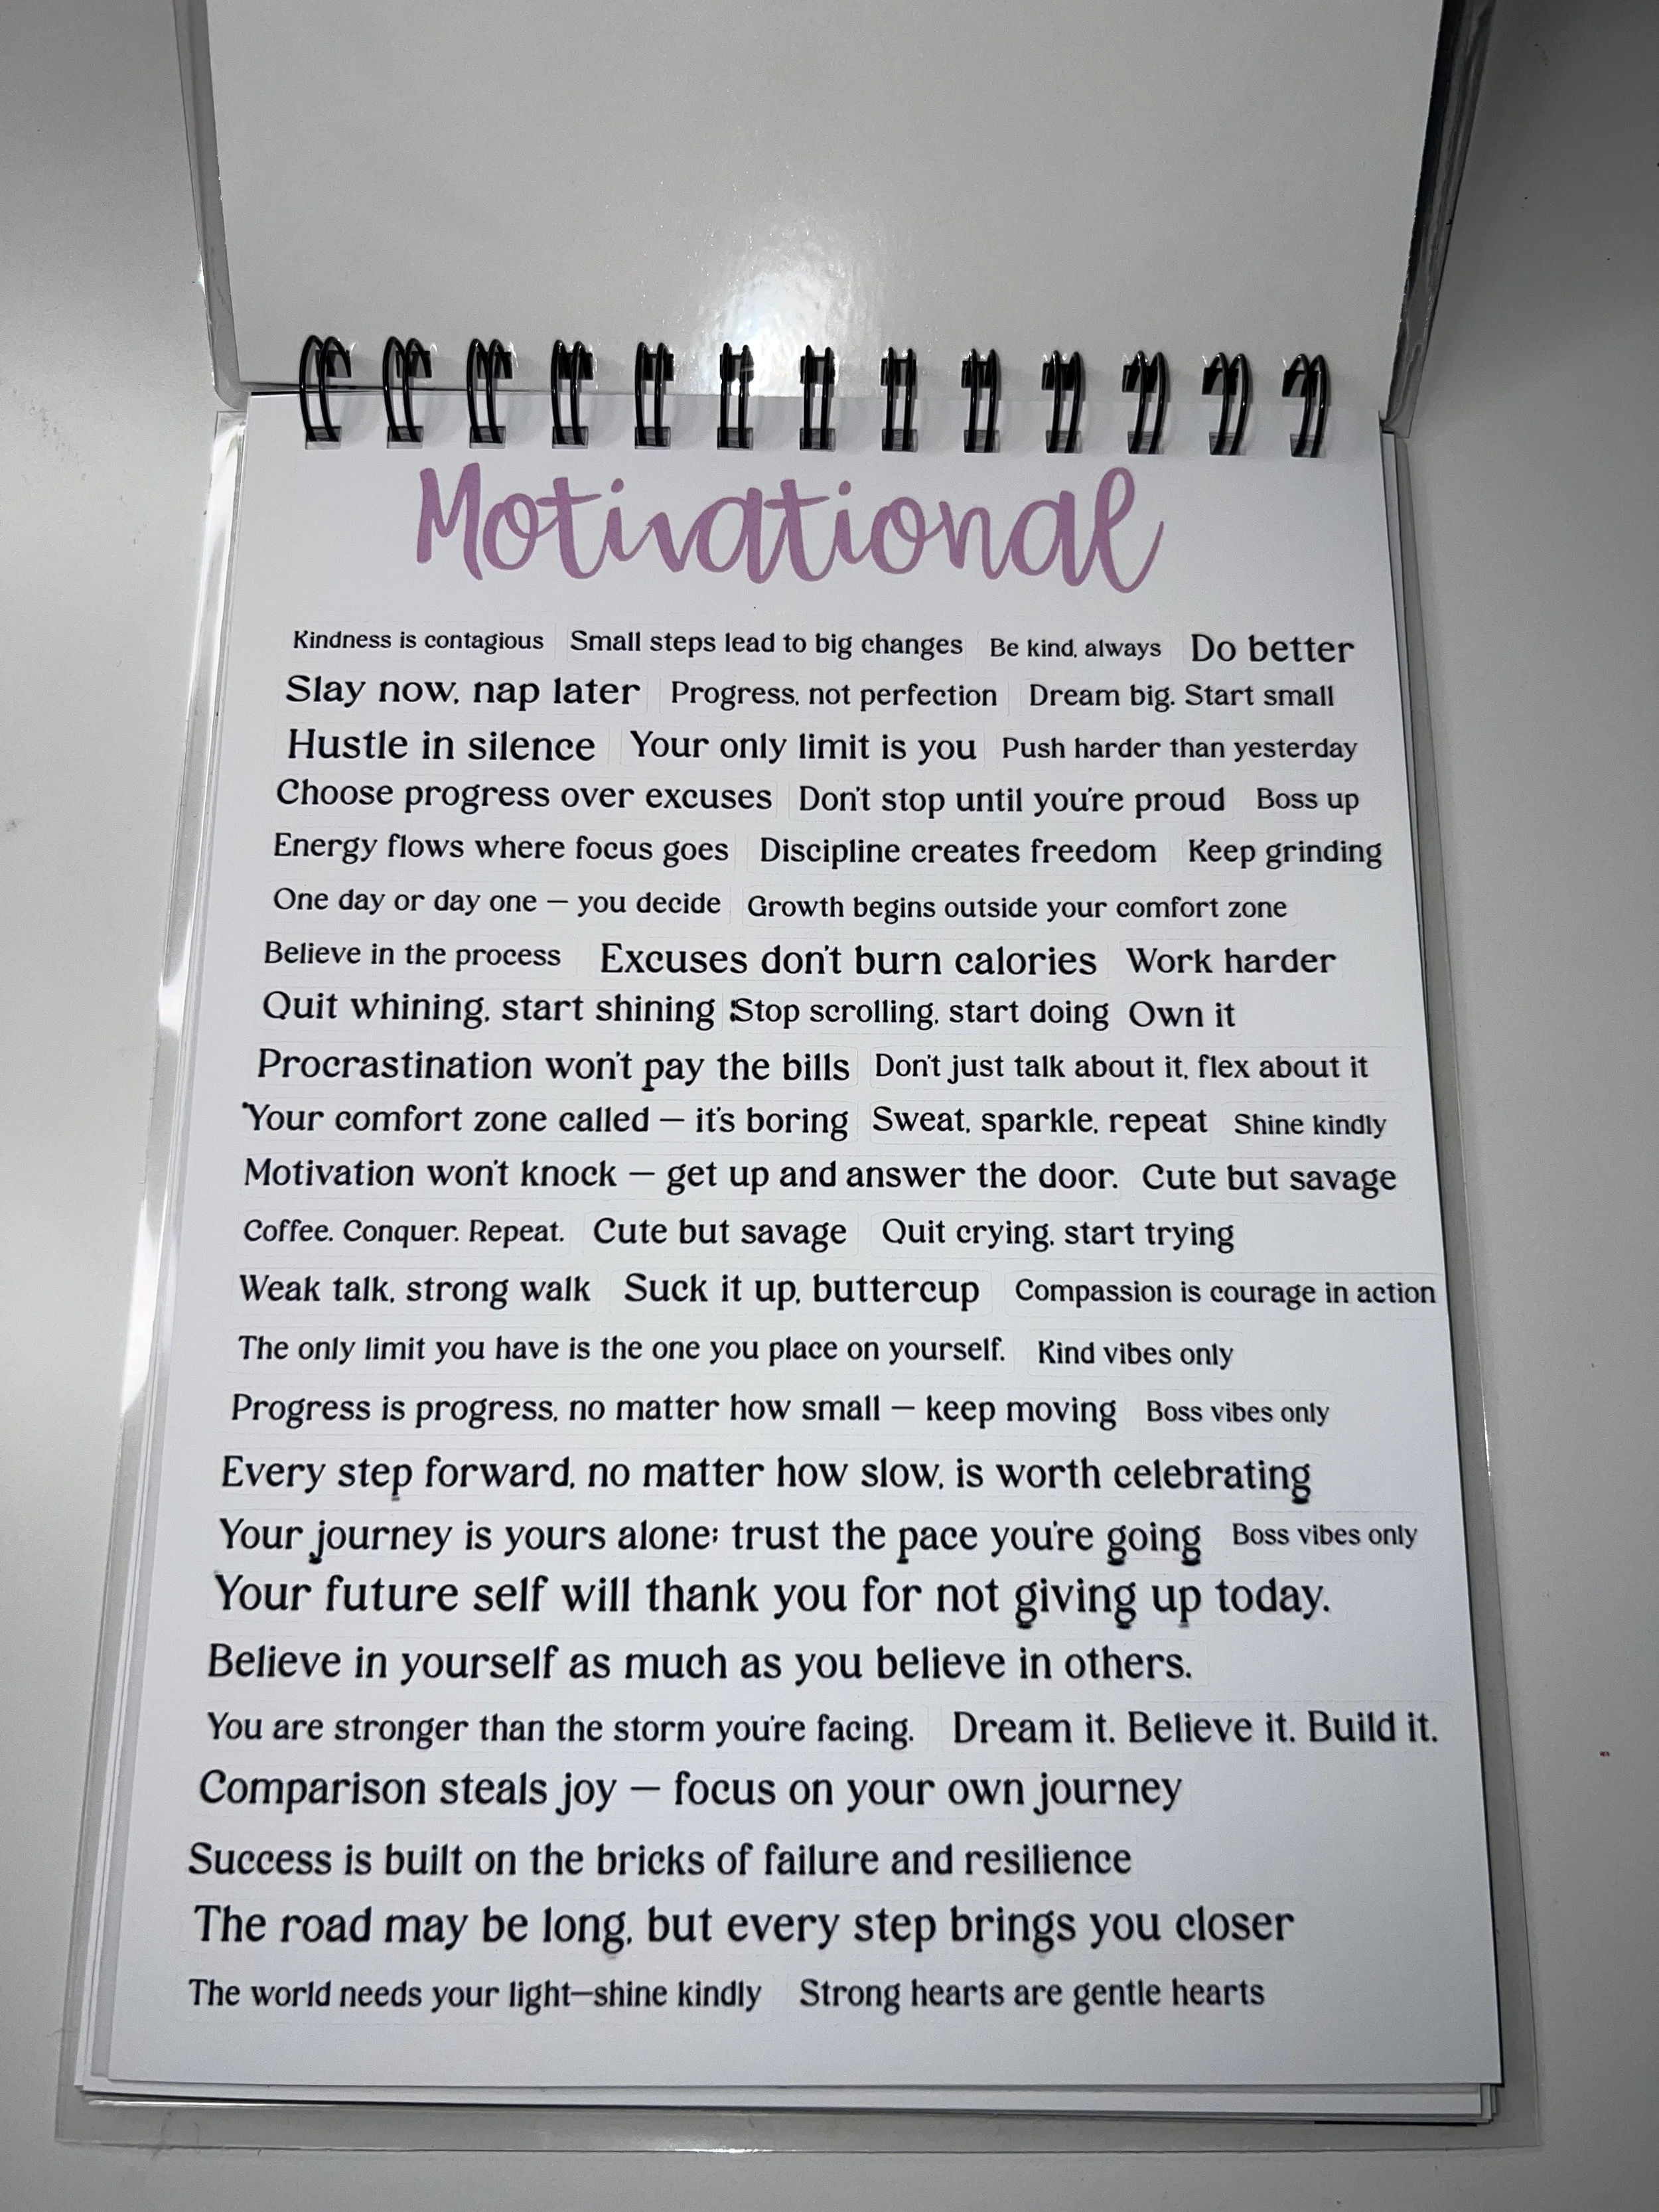 Motivational
Kindness is contagious Small steps lead to big changes Be kind, always Do better
Slay now, nap later Progress, not perfection Dream big. Start small
Hustle in silence Your only limit is you Push harder than yesterday
Choose progress over excuses Don't stop until you're proud Boss up
Energy flows where focus goes Discipline creates freedom Keep grinding
One day or day one – you decide Growth begins outside your comfort zone
Believe in the process Excuses don't burn calories Work harder
Quit whining, start shining Stop scrolling, start doing Own it
Procrastination won't pay the bills Don't just talk about it, flex about it
Your comfort zone called – it's boring Sweat, sparkle, repeat Shine kindly
Motivation won't knock – get up and answer the door. Cute but savage
Coffee. Conquer. Repeat. Cute but savage Quit crying, start trying
Weak talk, strong walk Suck it up, buttercup Compassion is courage in action
The only limit you have is the one you place on yourself. Kind vibes only
Progress is progress, no matter how small – keep moving Boss vibes only
Every step forward, no matter how slow, is worth celebrating
Your journey is yours alone; trust the pace you're going Boss vibes only
Your future self will thank you for not giving up today.
Believe in yourself as much as you believe in others.
You are stronger than the storm you're facing. Dream it. Believe it. Build it.
Comparison steals joy – focus on your own journey
Success is built on the bricks of failure and resilience
The road may be long, but every step brings you closer
The world needs your light—shine kindly Strong hearts are gentle hearts